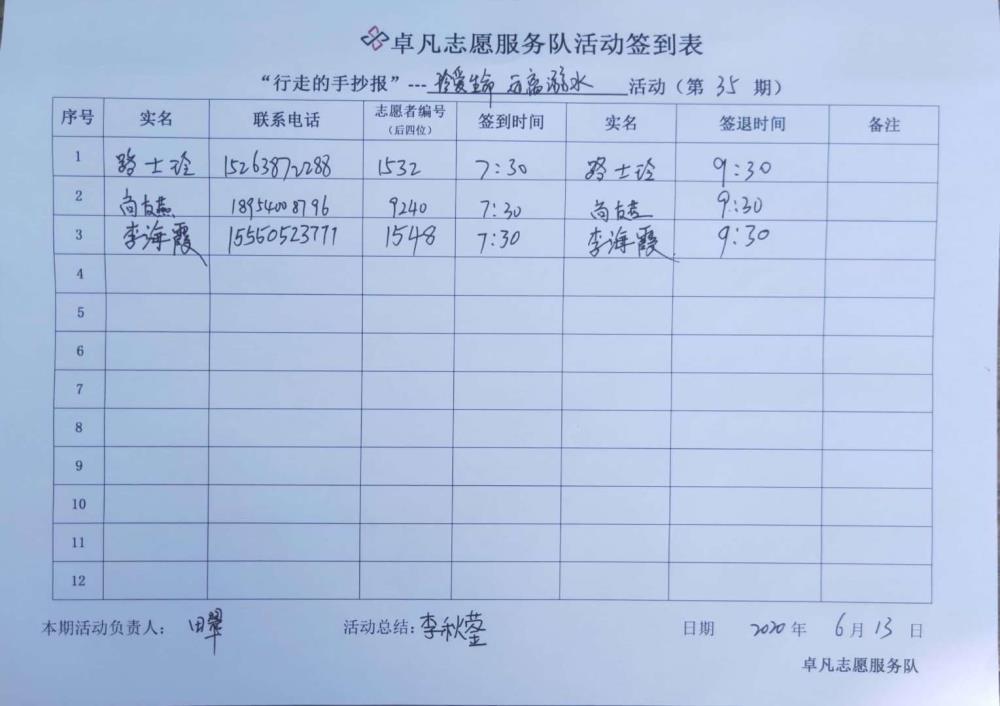 卓凡志愿服务队活动签到表
“行走的手抄报”---珍爱生命 远离溺水 活动（第 35 期）
序号 实名 联系电话 志愿者编号（后四位） 签到时间 实名 签退时间 备注
1 路士玲 15263872288 1532 7:30 路士玲 9:30
2 尚友燕 18954008796 9240 7:30 尚友燕 9:30
3 李海霞 15550523771 1548 7:30 李海霞 9:30
4
5
6
7
8
9
10
11
12
本期活动负责人： 田翠 活动总结：李秋莹 日期 2020 年 6 月 13 日
卓凡志愿服务队